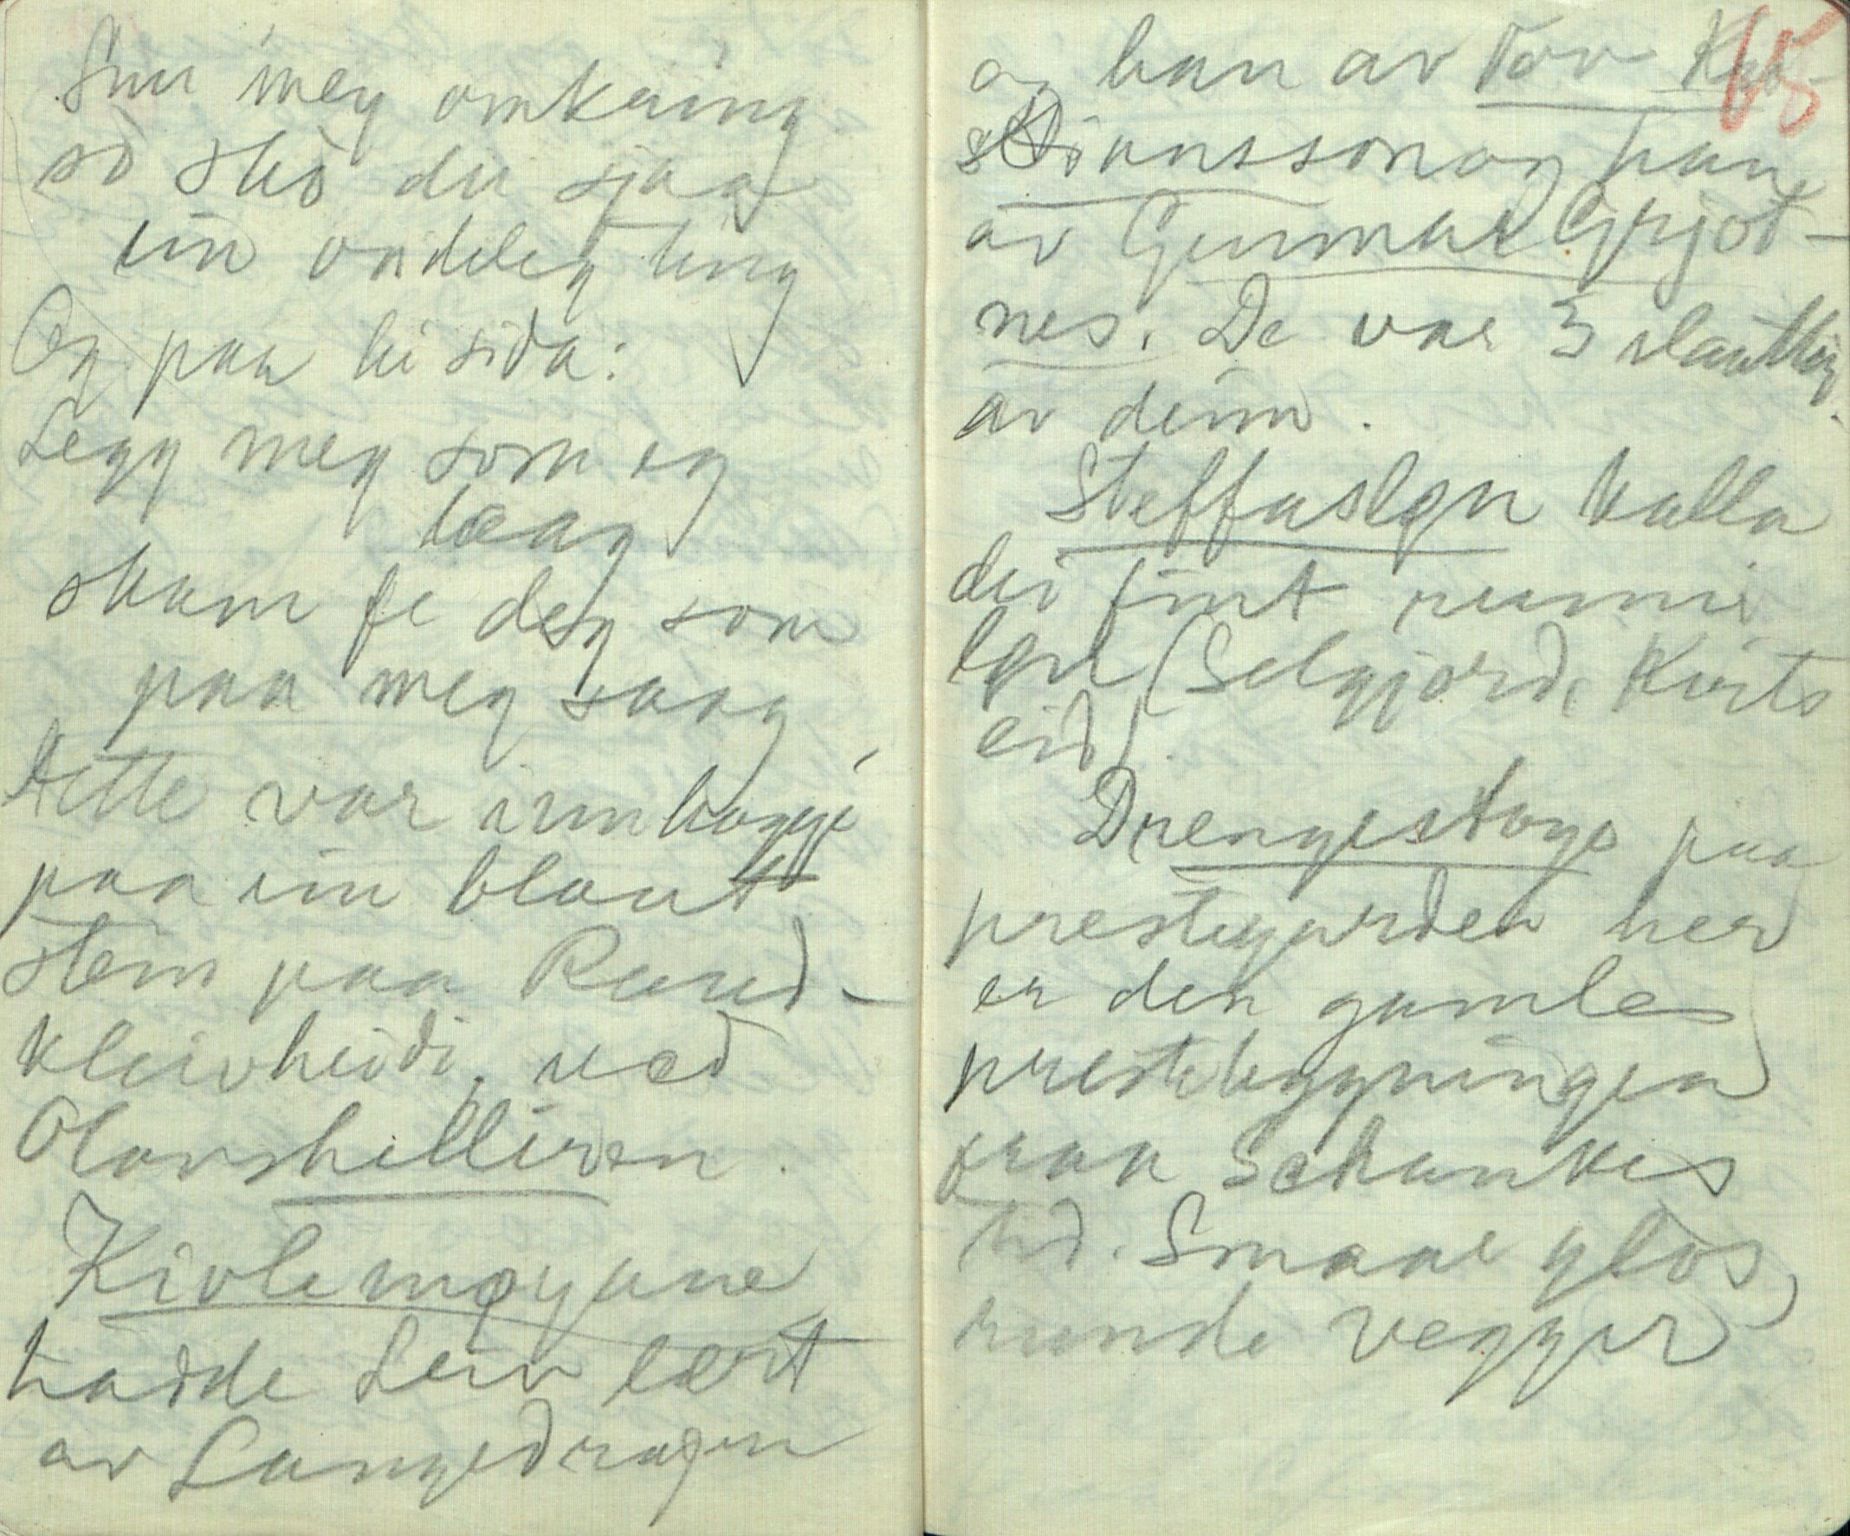 Snu meg omkring
so sko du sjaa
ein vndeleg ting
Og paa hi sida:
Legg meg som eg
laag
skam fe deg som
paa meg saag
Dette var innhoggje
paa ein blaut
stein paa Rund-
kleivheidi, ved
Olavshelliren.
Kivlemøyane
hadde Leiv lært
av Langedragen
og han av Tov
stianssonog han
av Gunnar Grjot-
nes. De var 3 slaatter
av deim.
Steffasløn kalla
dei eint rumi
løn (Selgjord, Kvits
eid).
Drengestoga paa
prestegarden her
er den gamle
prestebygningen
fraa Schankes
tid. Smaae glos,
runde vegger
65